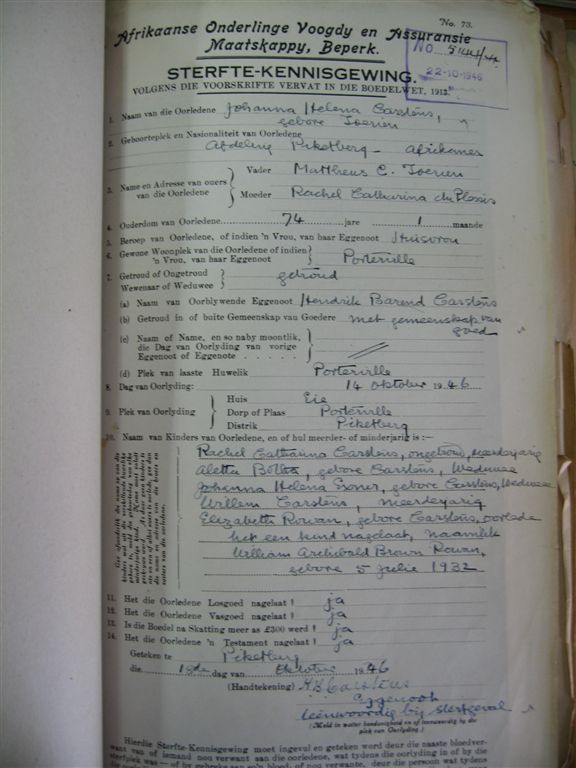 No. 73.
Afrikaanse Onderlinge Voogdy en Assuransie
Maatskappy, Beperk.
No
22-10-1946
STERFTE-KENNISGEWING.
VOLGENS DIE VOORSKRIFTE VERVAT IN DIE BOEDELWET, 1913.
1. Naam van die Oorledene Johanna Helena Carstens,
gebore Toerien
2. Geboorteplek en Nasionaliteit van Oorledene
Afdeling Piketberg - Afrikaner
3. Name en Adresse van ouers van die Oorledene
Vader Mattheus C. Toerien
Moeder Rachel Catharina du Plessis
4. Ouderdom van Oorledene 74 jare 1 maande
5. Beroep van Oorledene, of indien 'n Vrou, van haar Eggenoot Huisvrou
6. Gewone Woonplek van die Oorledene of indien
'n Vrou, van haar Eggenoot Porterville
7. Getroud of Ongetroud
Wewenaar of Weduwee getroud
(a) Naam van Oorblywende Eggenoot Hendrik Barend Carstens
(b) Getroud in of buite Gemeenskap van Goedere met gemeenskap van
goed
(c) Naam of Name, en so naby moontlik,
die Dag van Oorlyding van vorige
Eggenoot of Eggenote
(d) Plek van laaste Huwelik Porterville
8. Dag van Oorlyding: 14 Oktober 1946
9. Plek van Oorlyding
Huis Eie
Dorp of Plaas Porterville
Distrik Piketberg
10. Naam van Kinders van Oorledene, en of hul meerder- of minderjarig is :—
Rachel Catharina Carstens, ongetroud, meerderjarig
Aletta Botha, gebore Carstens, Weduwee
Johanna Helena gebore Carstens, Weduwee
Willem Carstens, meerderjarig
Elizabeth Rowan, gebore Carstens, oorlede
het een kind nagelaat, naamlik
William Archibald Brown Rowan,
gebore 5 Julie 1932
11. Het die Oorledene Losgoed nagelaat? ja
12. Het die Oorledene Vasgoed nagelaat? ja
13. Is die Boedel na Skatting meer as £300 werd? ja
14. Het die Oorledene 'n Testament nagelaat? ja
Geteken te Piketberg
die 19de dag van Oktober 1946
(Handtekening) H B Carstens
Eggenoot
teenwoordig by sterfgeval
(Meld in watter hoedanigheid en of teenwoordig by die
plek van Oorlyding)
Hierdie Sterfte-Kennisgewing moet ingevul en geteken word deur die naaste bloedver-
want van of iemand nou verwant aan die oorledene, wat tydens die oorlyding in of by die